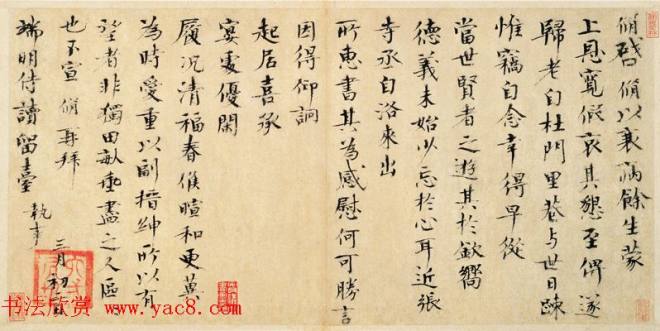 脩啓脩以衰病餘生蒙
上恩寛假哀其懇至俾遂
歸老自杜門里巷與世日踈
惟竊自念幸得早從
當世賢者之遊其於欽嚮
德義未始少忘於心耳近張
寺丞自洛來出
所惠書其為感慰何可勝言
因得仰詢
起居喜承
宴處優閑
履况清福春候暄和更冀
為時愛重以副搢紳所以有
望者非獨田畝垂盡之人區區
也不宣 脩再拜
端明侍讀留臺 執事
三月初二日
书法欣赏
www.yac8.com